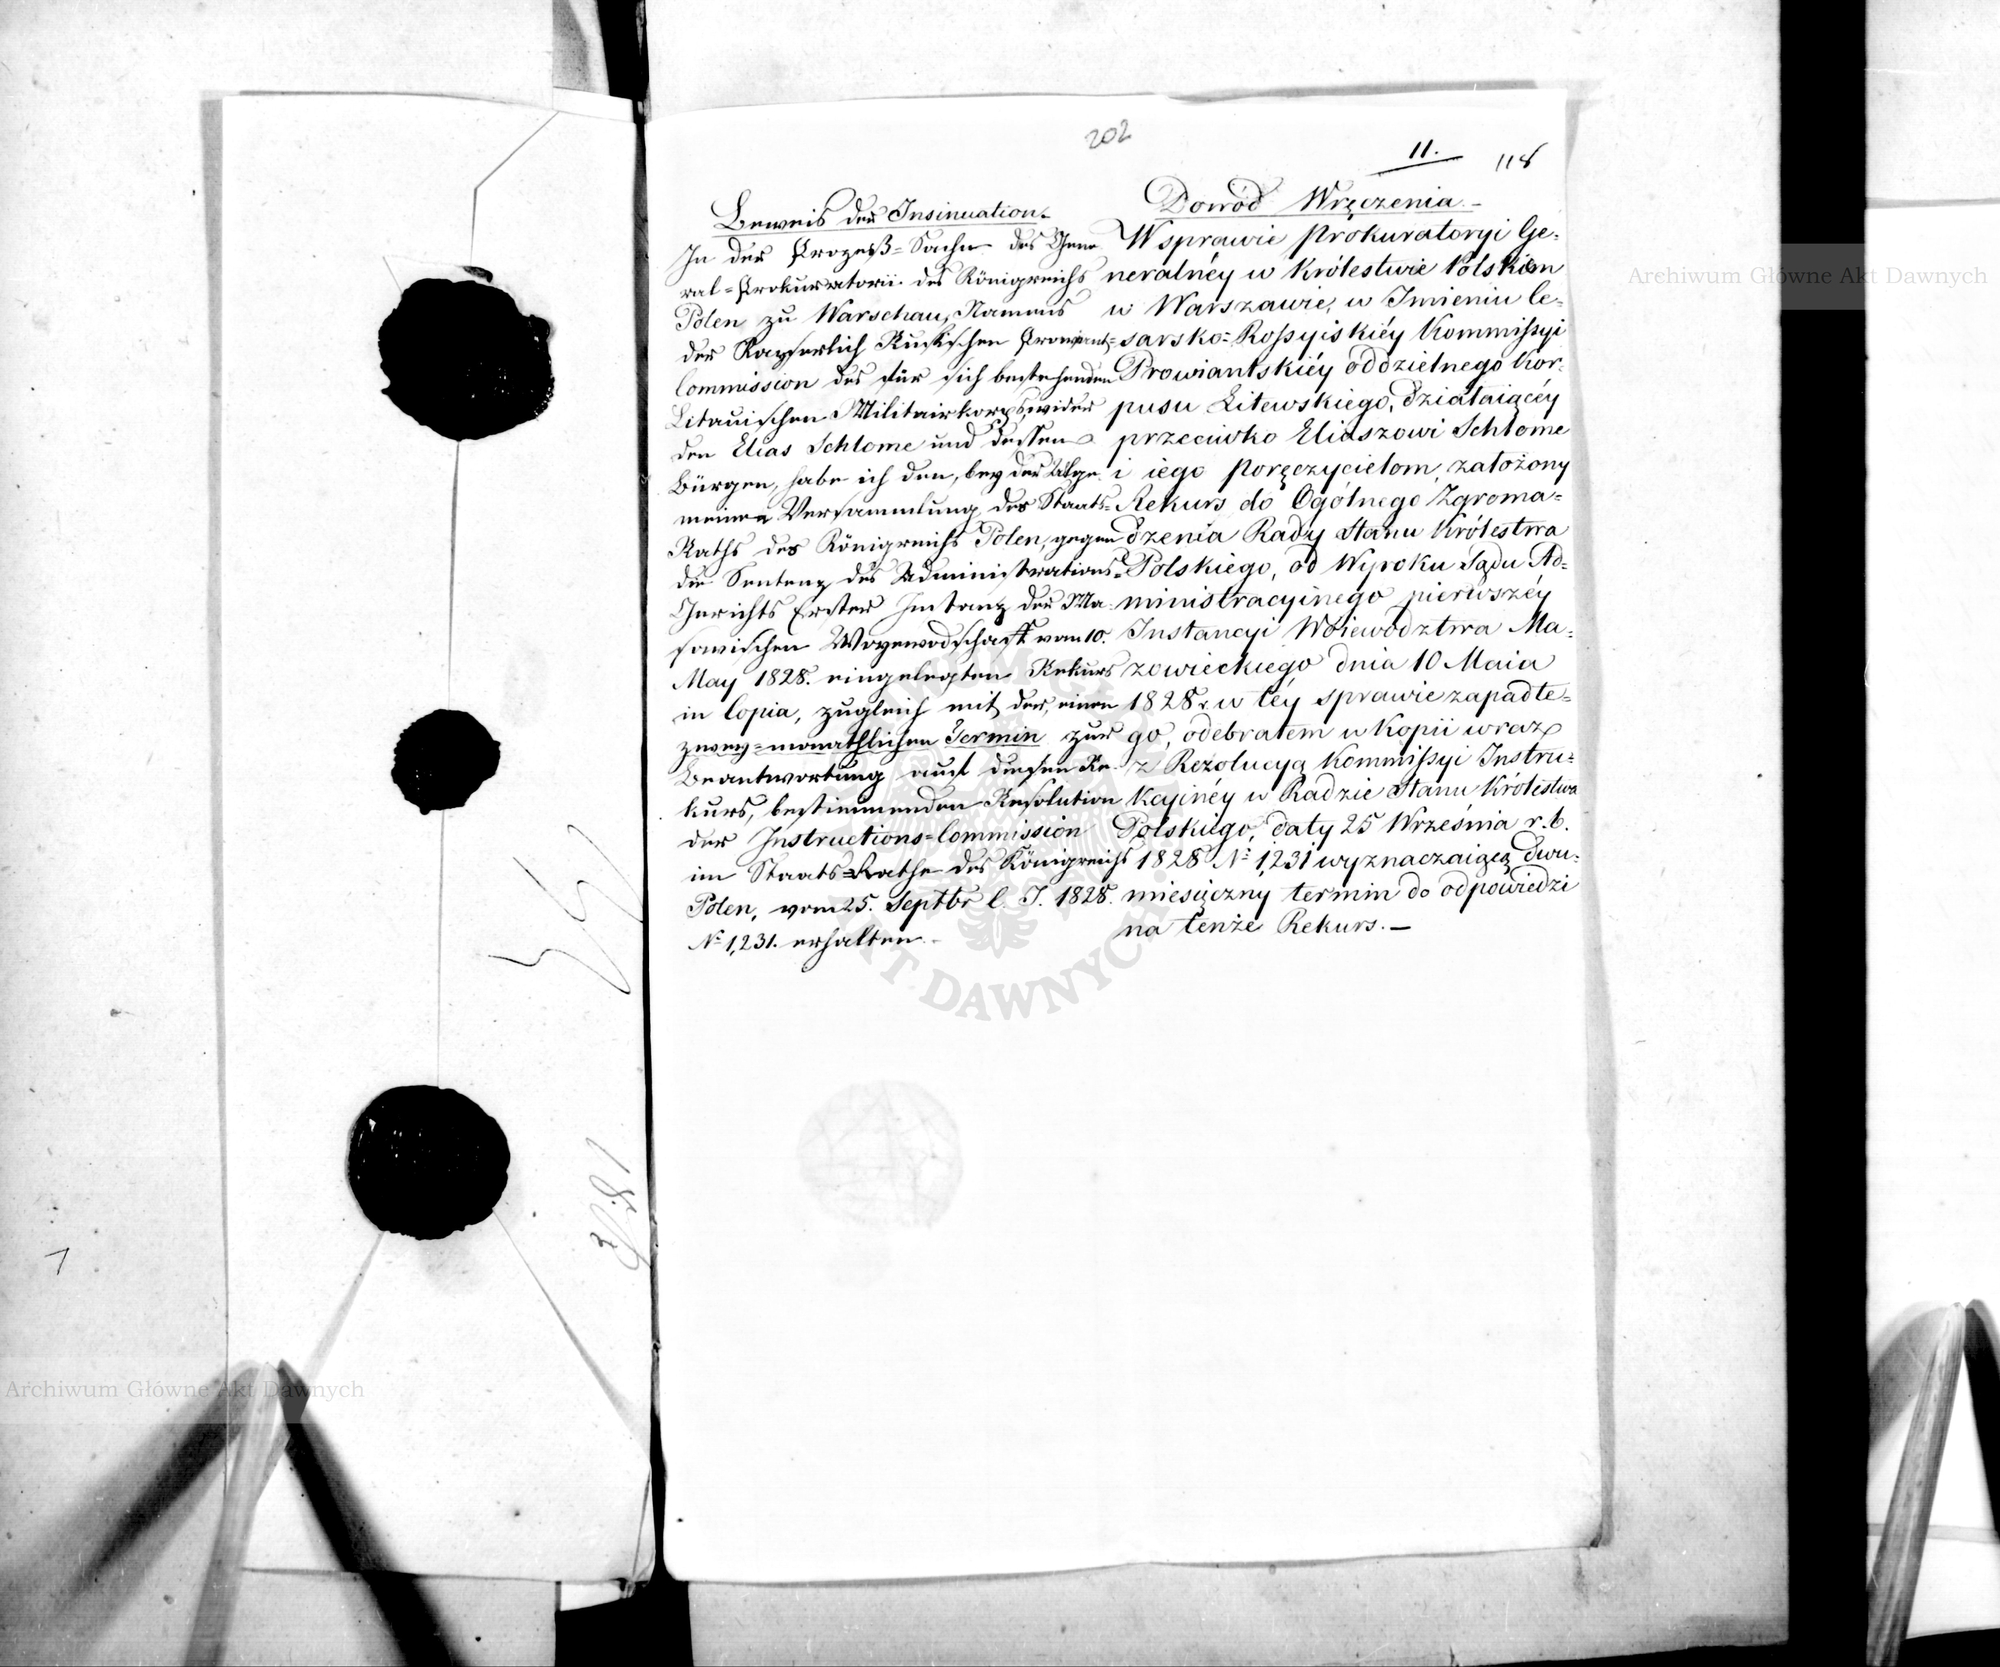 202
11.
118
Beweis der Insinuation.
In der Prozeß=Sache des Gene
ral=Prokuratorii des Königreichs
Polen zu Warschau, Namens
der Kayserlich Rußischen Proviant=
Commission des für sich bestehenden
Litauischen Militairkorps, wider
den Elias Schlome und dessen
Bürgen, habe ich den, bey der Allge
meinen Versammlung des Staats=
Raths des Königreichs Polen, gegen
die Sentenz des Administrations=
Gerichts Erster Instanz der Ma
sowischen Woyewodschaft vom 10.
May 1828. eingelegten Rekurs
in Copia, zugleich mit der, einen
zwey=monathlichen Termin zur
Beantwortung auf diesen Re
kurs, bestimmenden Resolution
der Instructions=Commission
im Staats=Rathe des Königreichs
Polen, vom 25. Septbr l. J. 1828.
No 1,231. erhalten.
Dowód Wręczenia.
W sprawie Prokuratoryi Ge=
neralnéy w Królestwie Polskiem
w Warszawie, w Imieniu Ce=
sarsko=Rossyiskiéy Kommissyi
Prowiantskiéy oddzielnego Kor=
pusu Litewskiego, działaiącéy
przeciwko Eliaszowi Schlome
i iego poręczycielom, założony
Rekurs do Ogólnego Zgroma=
dzenia Rady Stanu Królestwa
Polskiego, od Wyroku Sądu Ad=
ministracyinego pierwszéy
Instancyi Woiewodztwa Ma=
zowieckiego dnia 10 Maia
1828 r. w téy sprawie zapadłe=
go, odebrałem w Kopii wraz
z Rezolucyą Kommissyi Instru=
kcyinéy w Radzie Stanu Królestwa
Polskiego, daty 25 Września r. b.
1828 No 1,231 wyznaczaiącą dwu=
miesięczny termin do odpowiedzi
na tenże Rekurs. —
Archiwum Główne Akt Dawnych
Archiwum Główne Akt Dawnych
AKT DAWNYCH